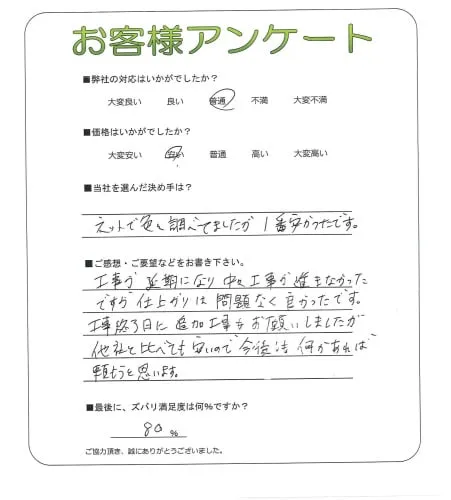 お客様アンケート
■弊社の対応はいかがでしたか？
大変良い 良い 普通 不満 大変不満
■価格はいかがでしたか？
大変安い 安い 普通 高い 大変高い
■当社を選んだ決め手は？
ネットで色々調べてましたが 1番安かったです。
■ご感想・ご要望などをお書き下さい。
工事が延期になり中々工事が進まなかった
ですが仕上がりは問題なく良かったです。
工事終了日に追加工事もお願いしましたが
他社と比べても安いので今後も何かあれば
頼もうと思います。
■最後に、ズバリ満足度は何％ですか？
80 %
ご協力頂き、誠にありがとうございました。